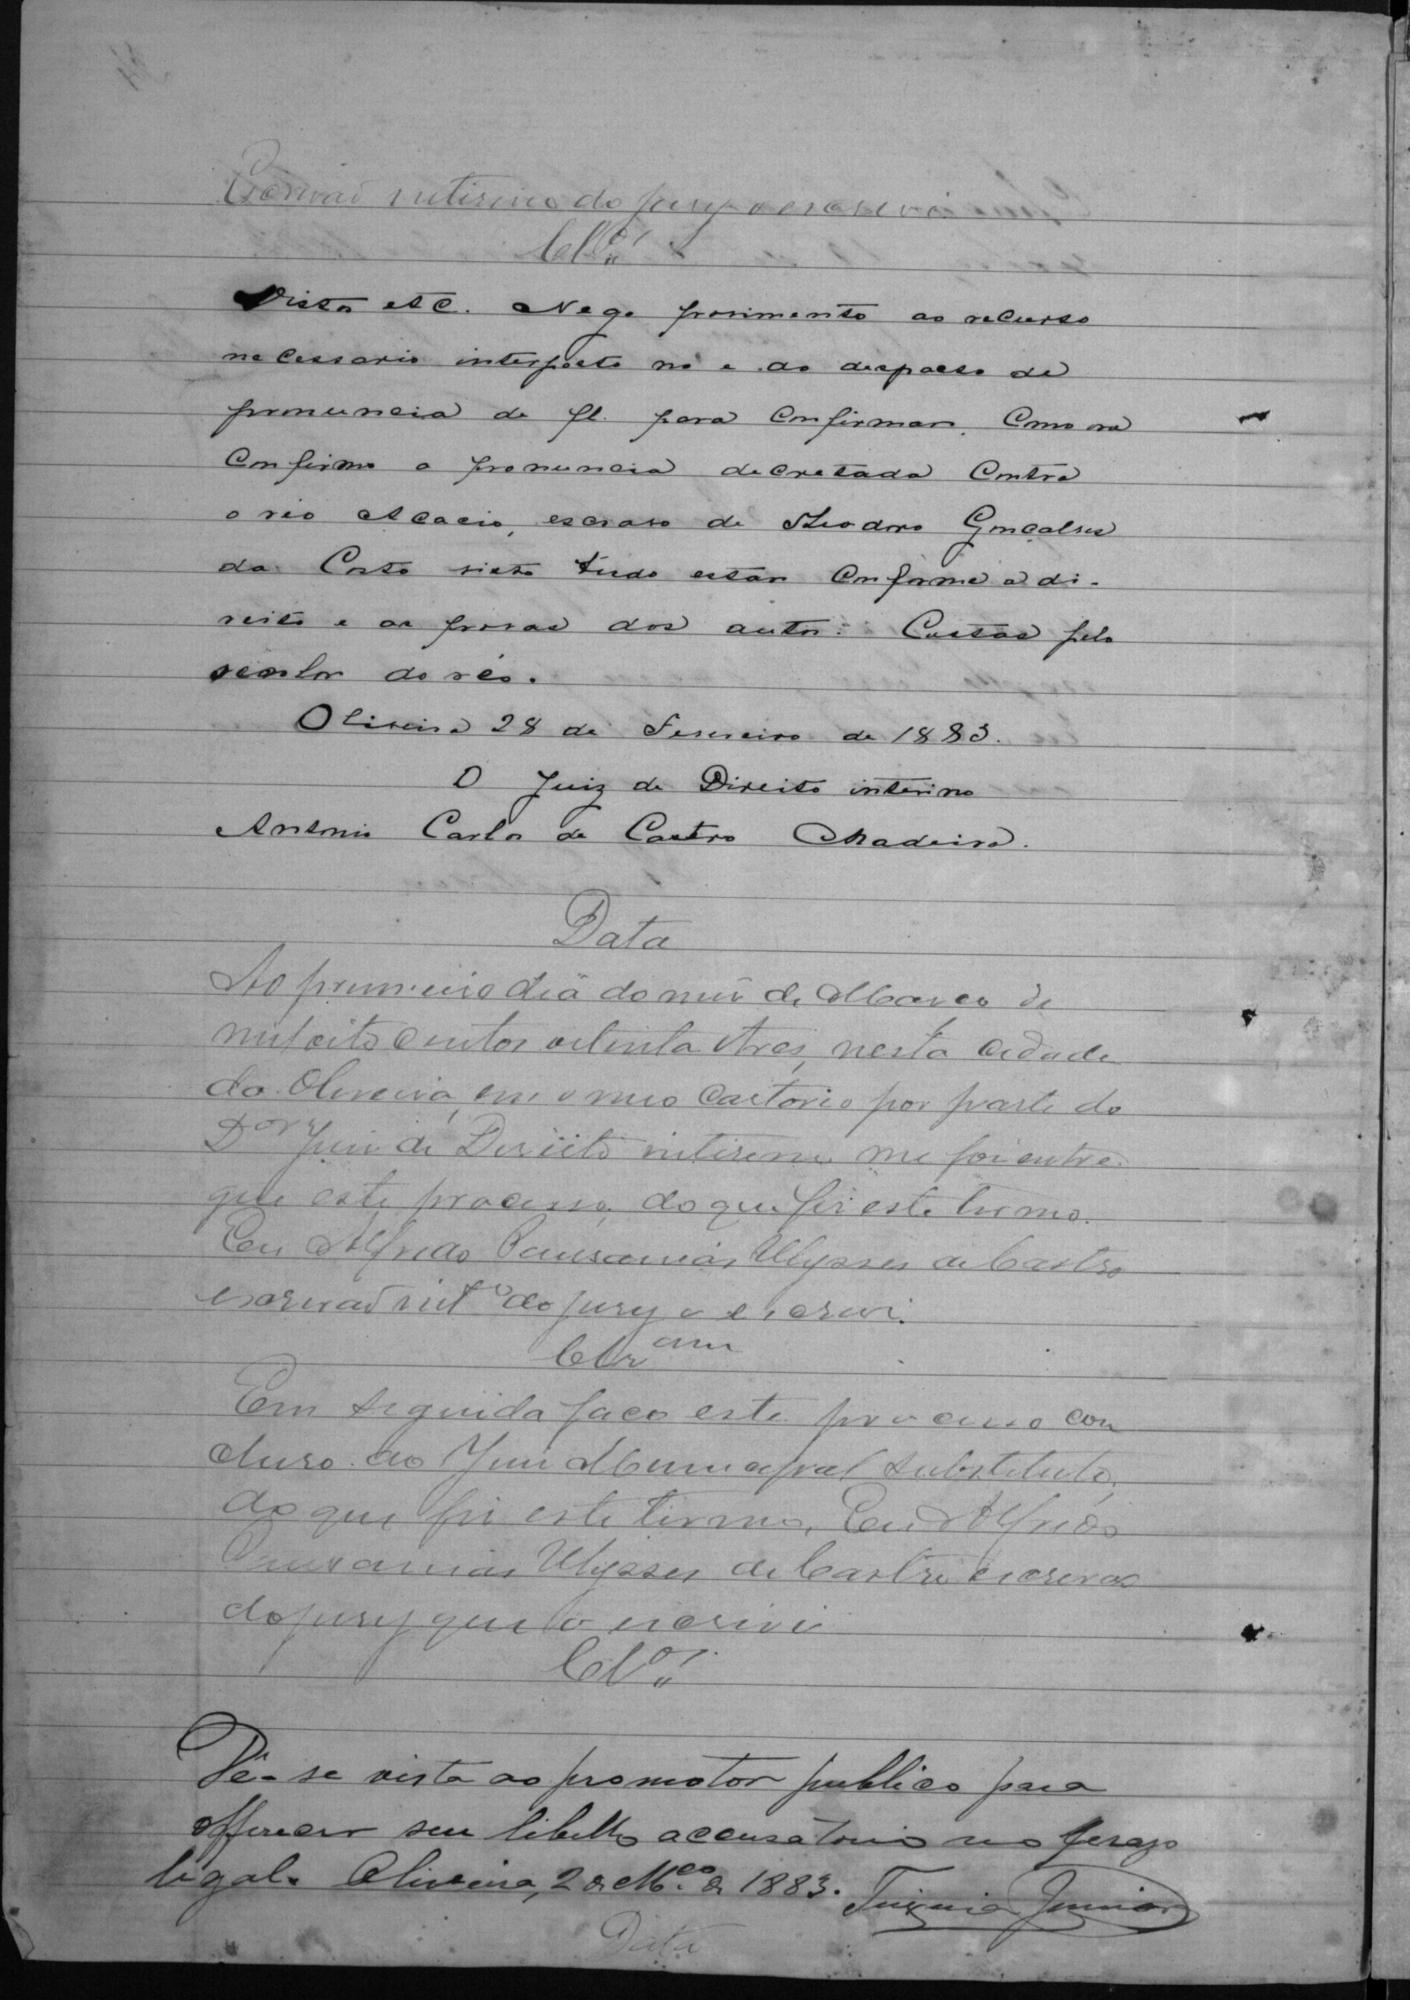 Escrivaõ interino do jury o escrevi
Cl.º
Vistos etc. Nego provimento ao recurso
necessario interposto no e ao despacho de
pronuncia de fl. para confirmar, como ora
confirmo a pronuncia decretada contra
o réo Acacio, escravo de Theodoro Gonçalves
da Costa visto tudo estar conforme a di-
reito e as provas dos autos. Custas pelo
senhor do réo.
Oliveira 28 de Fevereiro de 1883.
O Juiz de Direito interino
Antonio Carlos de Castro Madeira.
Data
Ao primeiro dia do mês de Março de
mil oito centos oitenta e tres, nesta cidade
da Oliveira, em o meo cartorio por parte do
Dor Juis de Direito interino me foi entre
gue este processo, do que fis este termo.
Eu Alfredo Pausanias Ulysses de Castro
escrivaõ intº do jury o escrevi.
Clzam
Em seguida faço este processo con
cluso ao Juis Municipal substituto,
do que fis este termo, Eu Alfredo
Pausanias Ulysses de Castro escrivaõ
do jury que o escrevi
Cl.º
Dê-se vista ao promotor publico para
offerecer seu libello accusatorio no prazo
legal. Oliveira, 2 de M.ço de 1883. Junior
Data